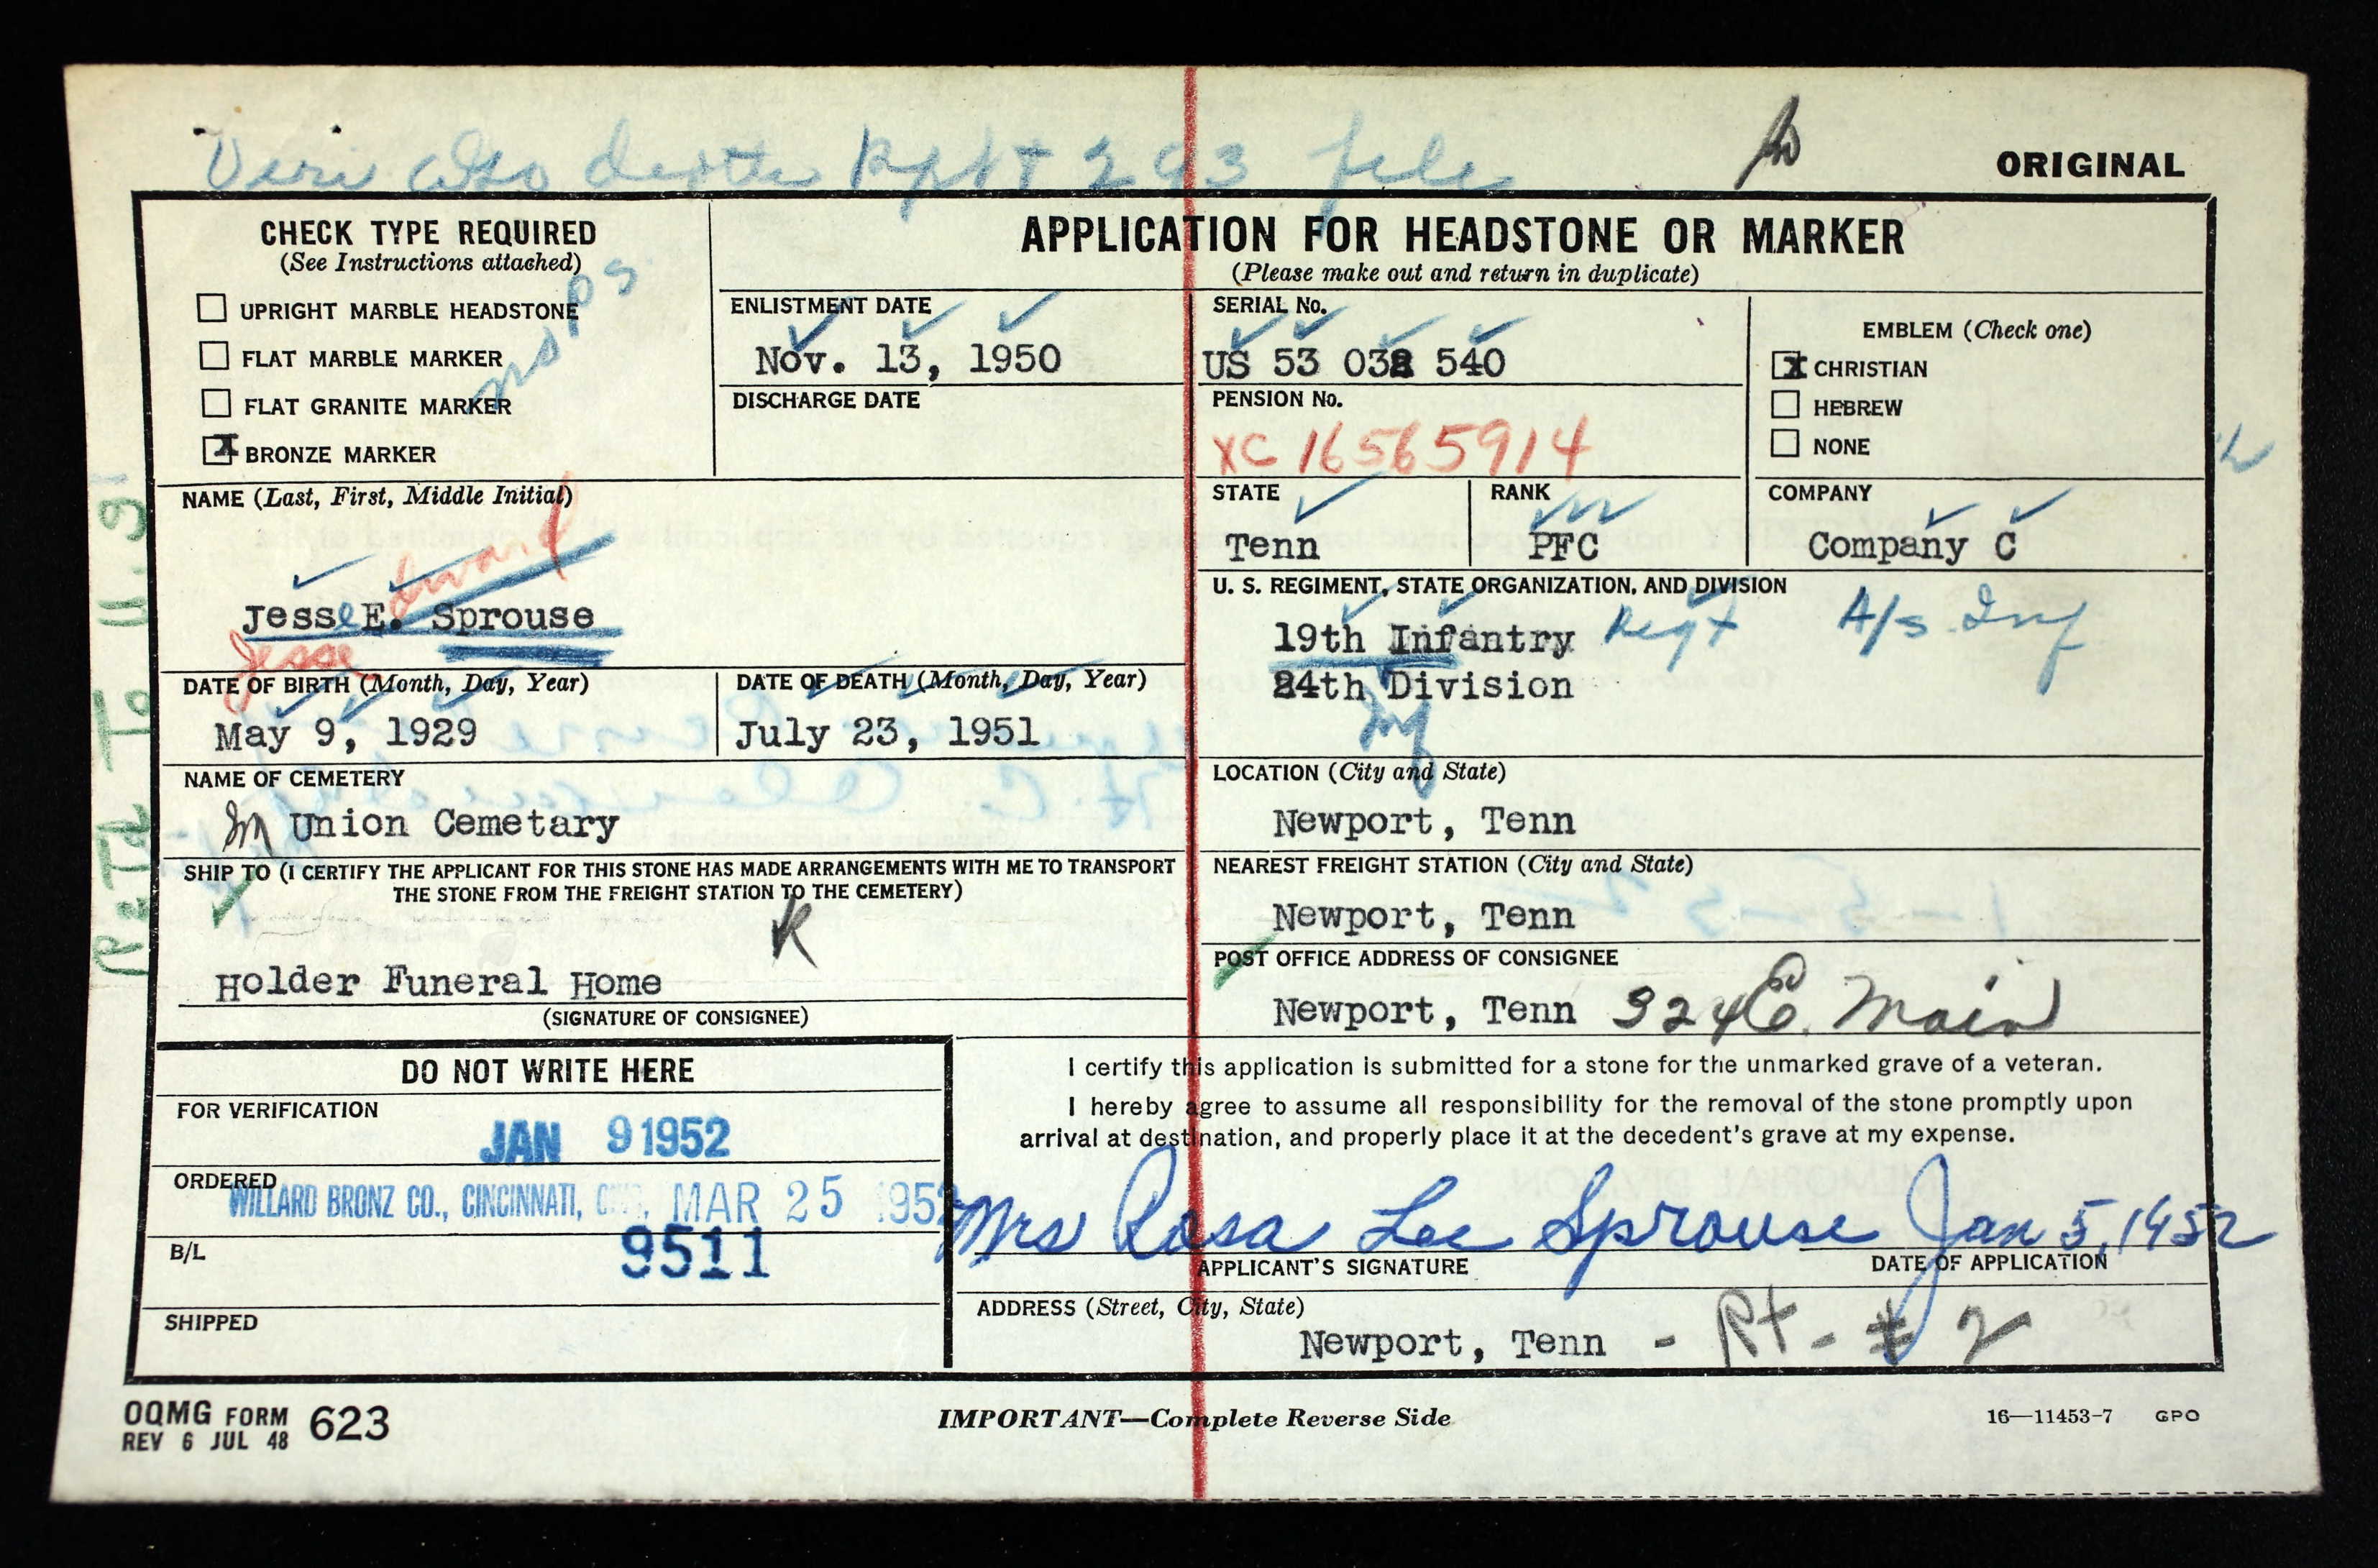 Veri also death Rpt 293 file
ORIGINAL
CHECK TYPE REQUIRED
(See Instructions attached)
UPRIGHT MARBLE HEADSTONE
FLAT MARBLE MARKER
FLAT GRANITE MARKER
X BRONZE MARKER
APPLICATION FOR HEADSTONE OR MARKER
(Please make out and return in duplicate)
ENLISTMENT DATE
Nov. 13, 1950
DISCHARGE DATE
SERIAL No.
US 53 032 540
PENSION No.
XC 16565914
EMBLEM (Check one)
X CHRISTIAN
HEBREW
NONE
NAME (Last, First, Middle Initial)
Edward
Jesse E. Sprouse
Jesse
STATE
Tenn
RANK
PFC
COMPANY
Company C
U. S. REGIMENT, STATE ORGANIZATION, AND DIVISION
19th Infantry Regt A/s Inf
24th Division
Inf
DATE OF BIRTH (Month, Day, Year)
May 9, 1929
DATE OF DEATH (Month, Day, Year)
July 23, 1951
NAME OF CEMETERY
Union Cemetary
LOCATION (City and State)
Newport, Tenn
SHIP TO (I CERTIFY THE APPLICANT FOR THIS STONE HAS MADE ARRANGEMENTS WITH ME TO TRANSPORT
THE STONE FROM THE FREIGHT STATION TO THE CEMETERY)
K
Holder Funeral Home
(SIGNATURE OF CONSIGNEE)
NEAREST FREIGHT STATION (City and State)
Newport, Tenn
POST OFFICE ADDRESS OF CONSIGNEE
Newport, Tenn 324 E. Main
DO NOT WRITE HERE
FOR VERIFICATION
JAN 9 1952
ORDERED
WILLARD BRONZ CO., CINCINNATI, MAR 25 1952
B/L
9511
SHIPPED
I certify this application is submitted for a stone for the unmarked grave of a veteran.
I hereby agree to assume all responsibility for the removal of the stone promptly upon
arrival at destination, and properly place it at the decedent's grave at my expense.
Mrs Rosa Lee Sprouse Jan 5, 1952
APPLICANT'S SIGNATURE
DATE OF APPLICATION
ADDRESS (Street, City, State)
Newport, Tenn - Rt - # 2
OQMG FORM 623
REV 6 JUL 48
IMPORTANT—Complete Reverse Side
16—11453-7 GPO